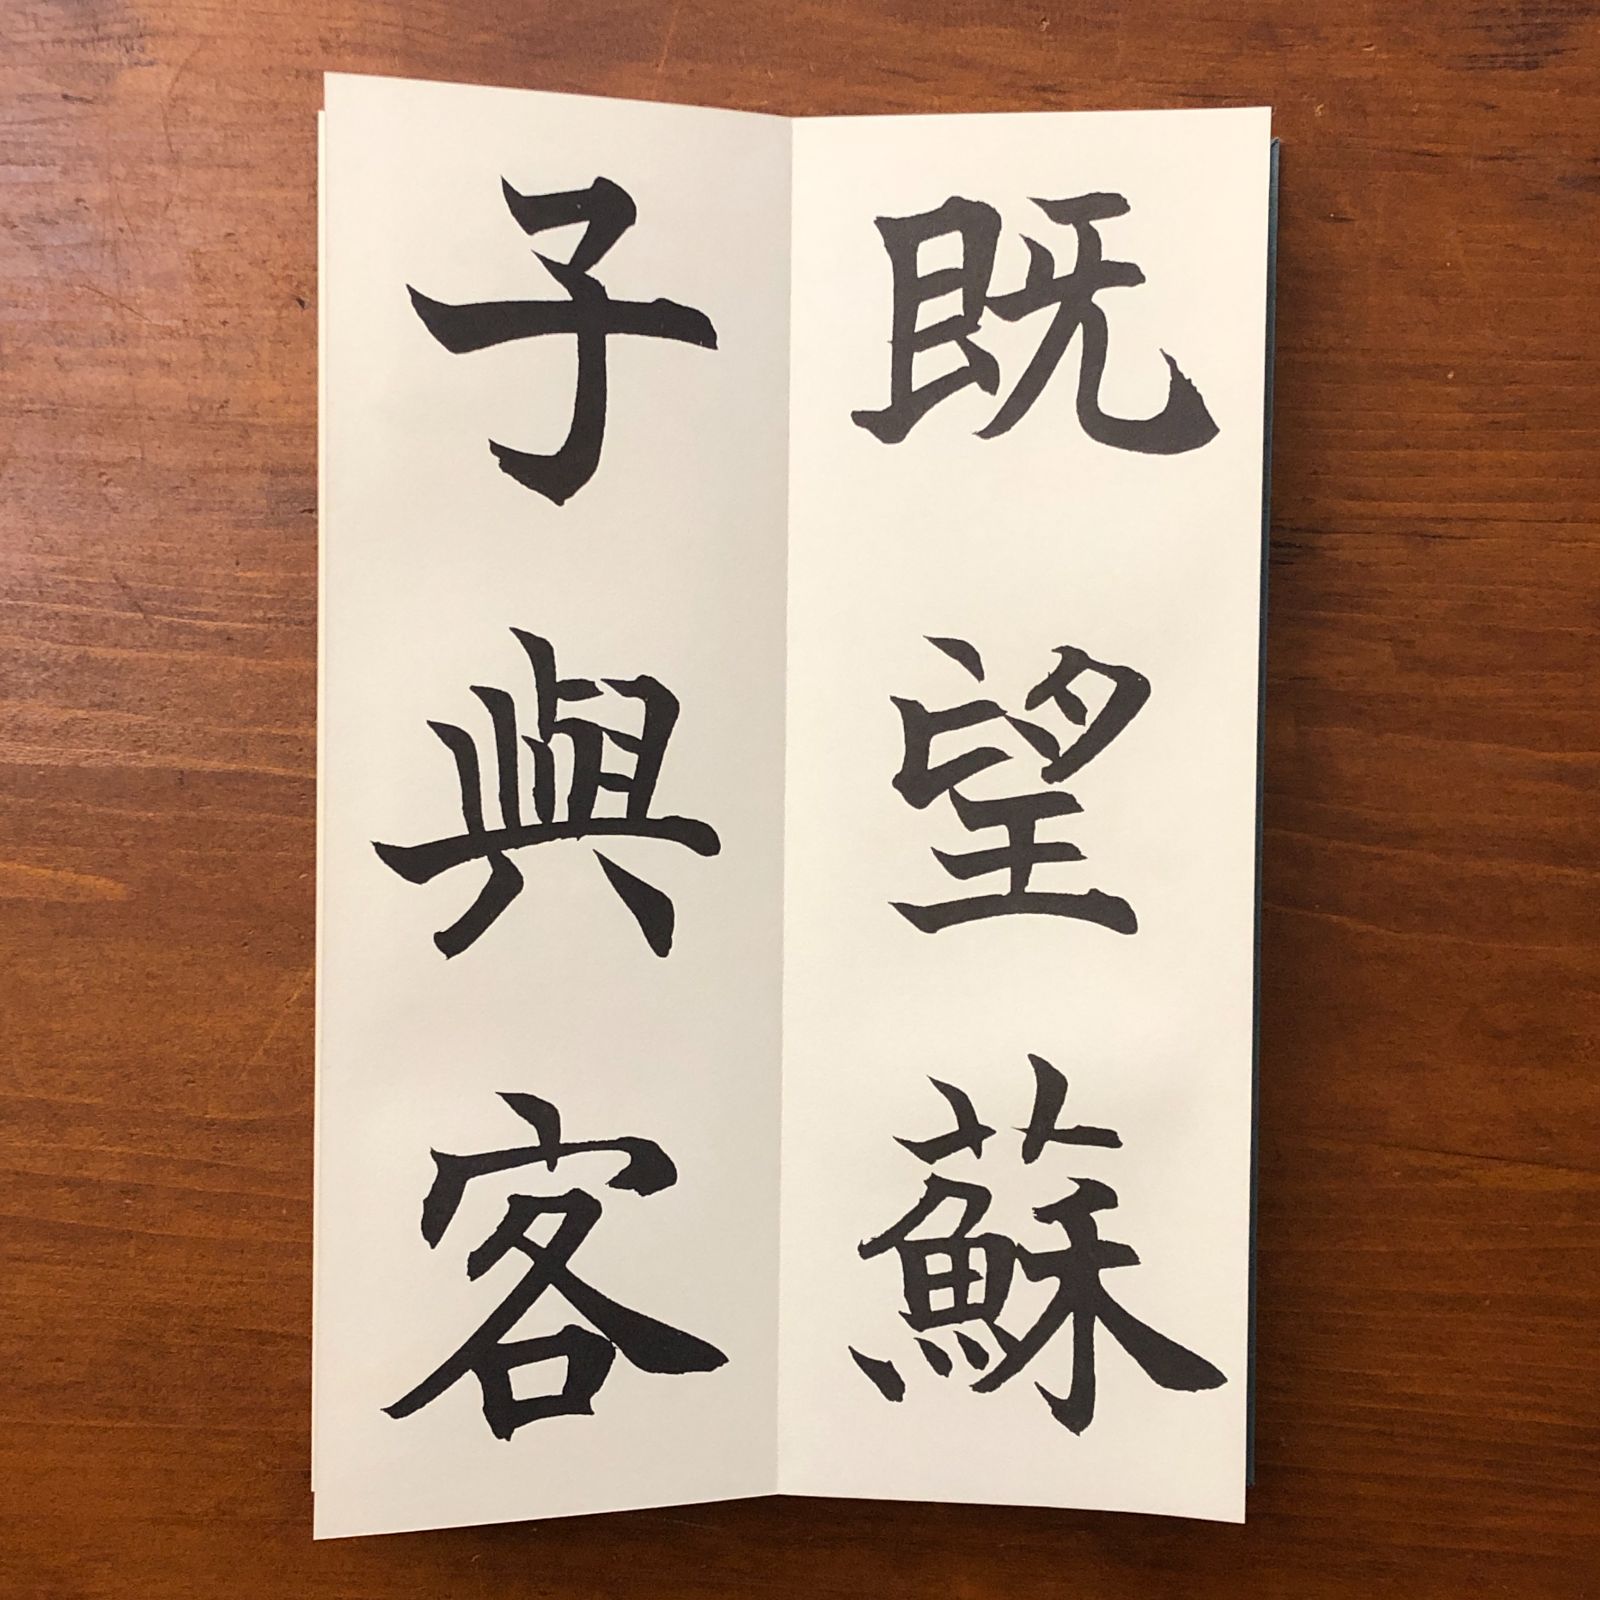 既望蘇
子與客